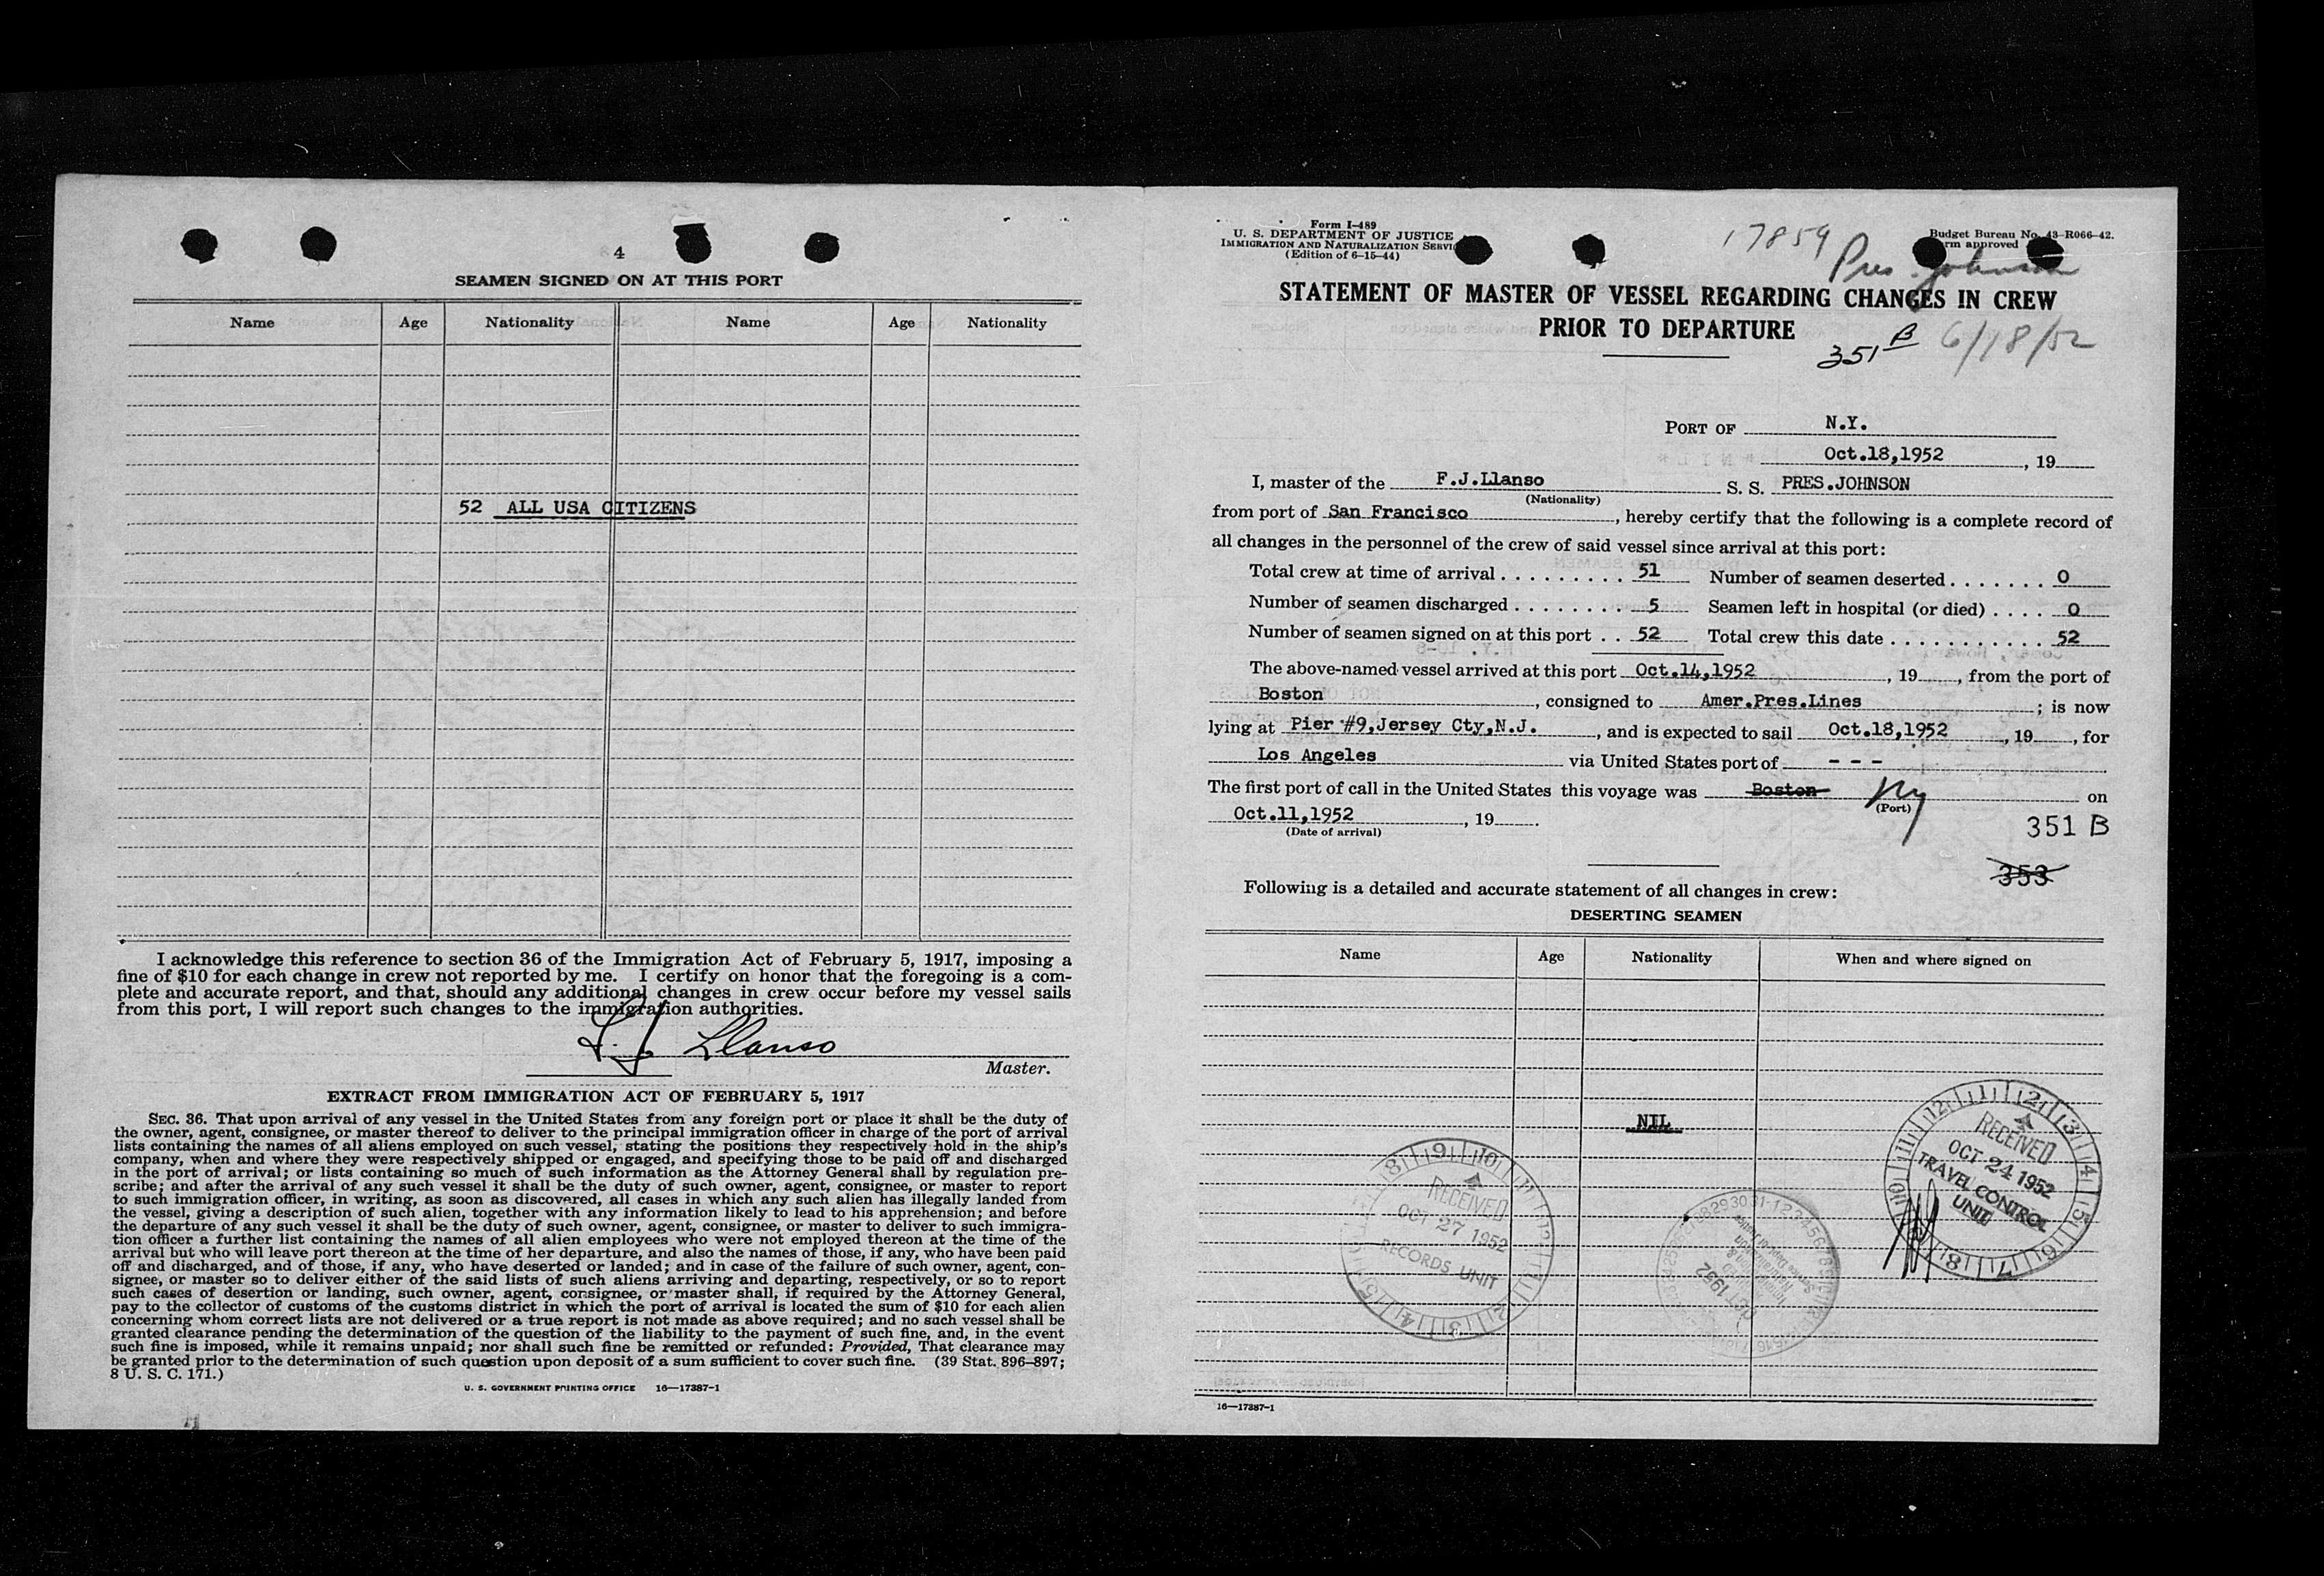 4
SEAMEN SIGNED ON AT THIS PORT
Name Age Nationality Name Age Nationality
52 ALL USA CITIZENS
I acknowledge this reference to section 36 of the Immigration Act of February 5, 1917, imposing a
fine of $10 for each change in crew not reported by me. I certify on honor that the foregoing is a com-
plete and accurate report, and that, should any additional changes in crew occur before my vessel sails
from this port, I will report such changes to the immigration authorities.
F. J. Llanso
Master.
EXTRACT FROM IMMIGRATION ACT OF FEBRUARY 5, 1917
SEC. 36. That upon arrival of any vessel in the United States from any foreign port or place it shall be the duty of
the owner, agent, consignee, or master thereof to deliver to the principal immigration officer in charge of the port of arrival
lists containing the names of all aliens employed on such vessel, stating the positions they respectively hold in the ship's
company, when and where they were respectively shipped or engaged, and specifying those to be paid off and discharged
in the port of arrival; or lists containing so much of such information as the Attorney General shall by regulation pre-
scribe; and after the arrival of any such vessel it shall be the duty of such owner, agent, consignee, or master to report
to such immigration officer, in writing, as soon as discovered, all cases in which any such alien has illegally landed from
the vessel, giving a description of such alien, together with any information likely to lead to his apprehension; and before
the departure of any such vessel it shall be the duty of such owner, agent, consignee, or master to deliver to such immigra-
tion officer a further list containing the names of all alien employees who were not employed thereon at the time of the
arrival but who will leave port thereon at the time of her departure, and also the names of those, if any, who have been paid
off and discharged, and of those, if any, who have deserted or landed; and in case of the failure of such owner, agent, con-
signee, or master so to deliver either of the said lists of such aliens arriving and departing, respectively, or so to report
such cases of desertion or landing, such owner, agent, consignee, or master shall, if required by the Attorney General,
pay to the collector of customs of the customs district in which the port of arrival is located the sum of $10 for each alien
concerning whom correct lists are not delivered or a true report is not made as above required; and no such vessel shall be
granted clearance pending the determination of the question of the liability to the payment of such fine, and, in the event
such fine is imposed, while it remains unpaid; nor shall such fine be remitted or refunded: Provided, That clearance may
be granted prior to the determination of such question upon deposit of a sum sufficient to cover such fine. (39 Stat. 896–897;
8 U. S. C. 171.)
U. S. GOVERNMENT PRINTING OFFICE 16—17387-1
Form I-489
U. S. DEPARTMENT OF JUSTICE
IMMIGRATION AND NATURALIZATION SERVI
(Edition of 6-15-44)
17859
Budget Bureau No. 43-R066-42.
rm approved
Pres. Johnson
STATEMENT OF MASTER OF VESSEL REGARDING CHANGES IN CREW
PRIOR TO DEPARTURE
351 B 6/18/52
PORT OF N.Y.
Oct.18,1952, 19
I, master of the F.J.Llanso S. S. PRES.JOHNSON
(Nationality)
from port of San Francisco, hereby certify that the following is a complete record of
all changes in the personnel of the crew of said vessel since arrival at this port:
Total crew at time of arrival . . . . . . . . . 51 Number of seamen deserted . . . . . . . 0
Number of seamen discharged . . . . . . . . 5 Seamen left in hospital (or died) . . . . 0
Number of seamen signed on at this port . . 52 Total crew this date . . . . . . . . . . . . 52
The above-named vessel arrived at this port Oct.14,1952, 19, from the port of
Boston, consigned to Amer.Pres.Lines; is now
lying at Pier #9,Jersey Cty,N.J., and is expected to sail Oct.18,1952, 19, for
Los Angeles via United States port of - - -
The first port of call in the United States this voyage was Boston NY on
(Port)
Oct.11,1952, 19.
(Date of arrival)
351 B
353
Following is a detailed and accurate statement of all changes in crew:
DESERTING SEAMEN
Name Age Nationality When and where signed on
NIL
RECEIVED
OCT 24 1952
TRAVEL CONTROL
UNIT
RECEIVED
OCT 27 1952
RECORDS UNIT
OCT 1952
16—17387-1